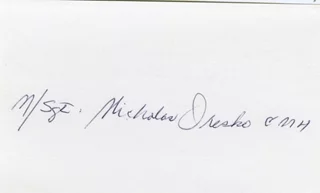 M/Sgt. Nicholas Oresko CMH